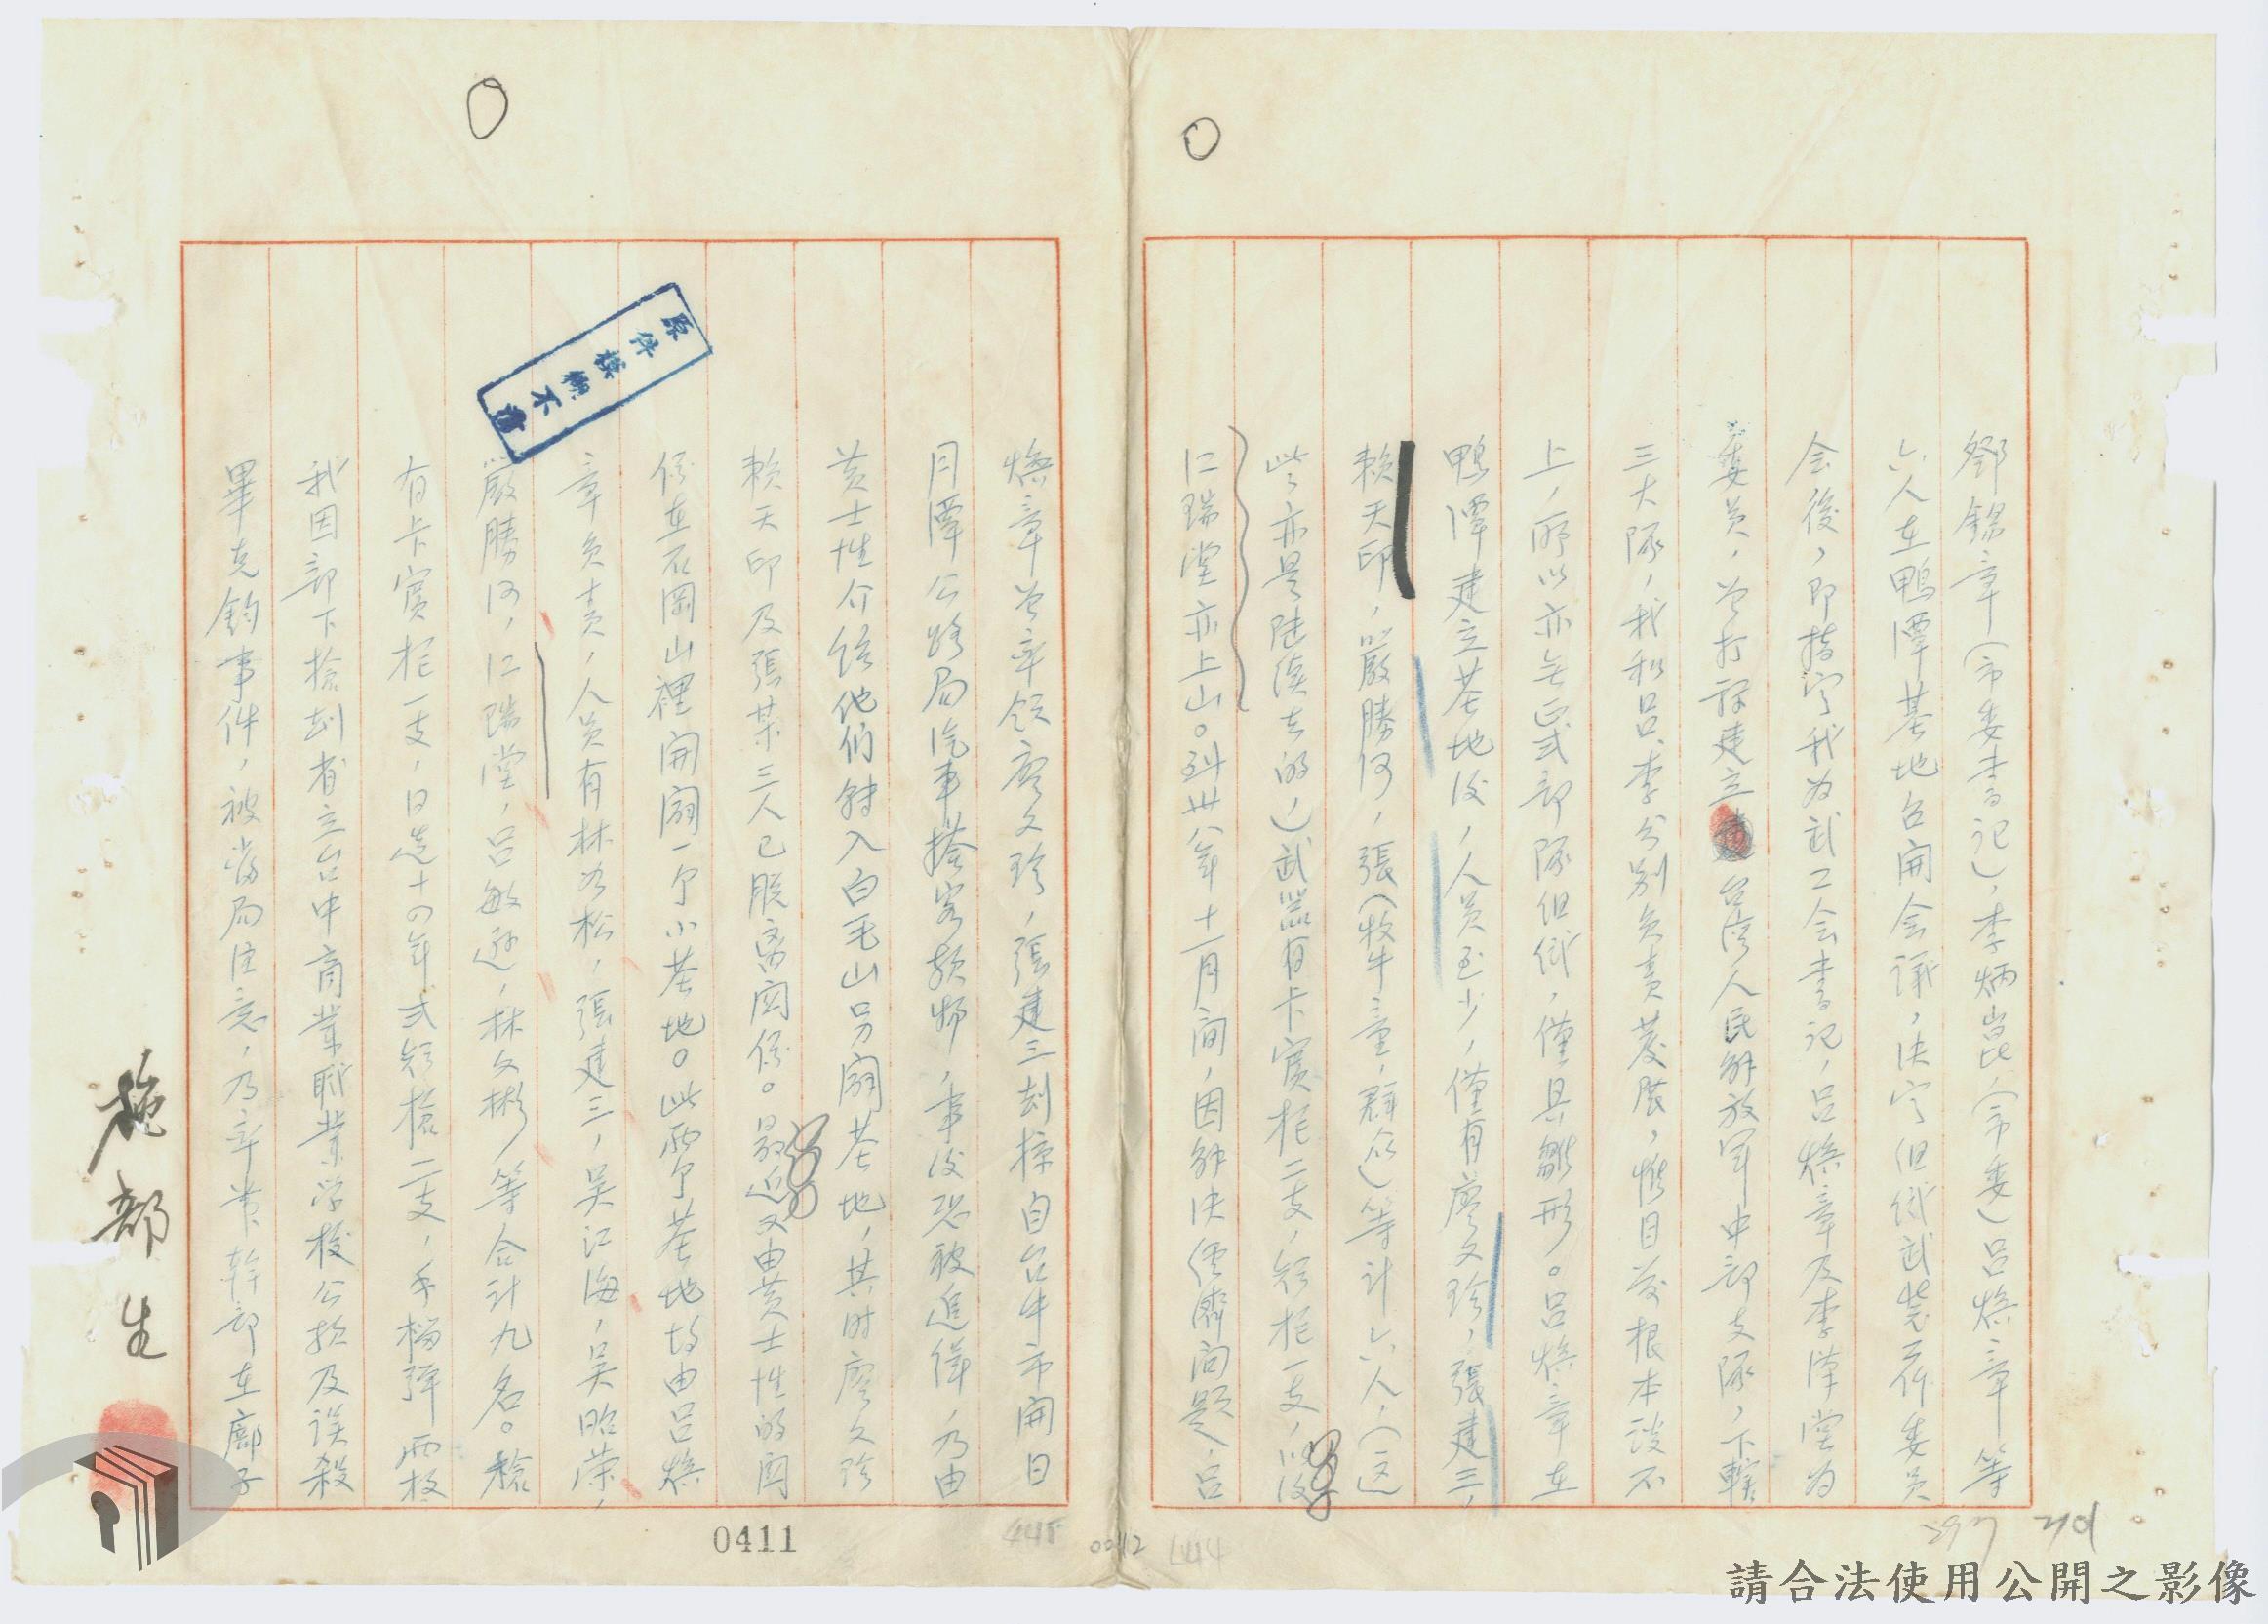 鄧錫章(市委書記),李炳崑,(市委)呂煥章等
六人在鴨潭基地召開会議,決定组織武裝工作委員
会後,即指定我为武工会書記,呂煥章及李漢堂为
委員,並打算建立台湾人民解放军中部支隊,下轄
三大隊,我和呂、李分别负責發展,惟目前根本談不
上,所以亦無正式部隊组織,僅具雛形。呂煥章在
鴨潭建立基地後,人員至少,僅有廖文珍,張建三,
賴天印,嚴勝河,張(牧牛童,群众)等計六人,(这
些亦是陸續去的,)武器有卡賓枪二支,短枪一支,以後
仁瑞堂亦上山。到卅八年十一月间,因解决经濟问題,呂
煥章並率领廖文珍,張建三刼掠自台中市開日
月潭公路局汽車搭客款物,事後恐被追缉,乃由
黄士性介绍他們转入白毛山另闢基地,其时廖文珍
賴天印及張某三人已脱离関係。最近又由黄士性的関
係在石岡山裡開闢一个小基地。此两个基地均由呂煥
章负責,人員有林如松,張建三,吴江海,吴昭荣,
嚴勝河,仁瑞堂,呂敏遜,林文彬等合計九名。槍
有卡賓枪一支,日造十四年式短槍二支,手榴弹两枚
我因部下搶刼省立台中商業職業学校公款及误殺
畢克鈞事件,被當局注意,乃率带幹部在廍子
施部生
原件模糊不清
0411
445
0012
444
請合法使用公開之影像